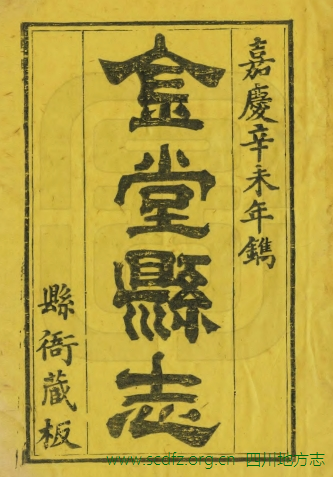 嘉慶辛未年鐫
金堂縣志
縣衙藏板
www.scdfz.org.cn 四川地方志